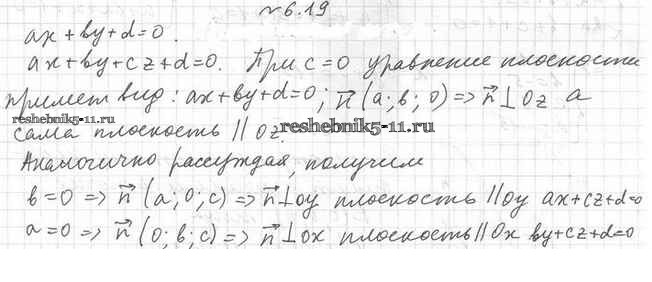 №6.19
ax + by + d = 0.
ax + by + cz + d = 0. При c = 0 уравнение плоскости
примет вид: ax + by + d = 0; n⃗ (a; b; 0) => n⃗ ⊥ Oz а
reshebnik5-11.ru
сама плоскость || Oz.
reshebnik5-11.ru
Аналогично рассуждая, получим
b = 0 => n⃗ (a; 0; c) => n⃗ ⊥ oy плоскость || oy ax + cz + d = 0
a = 0 => n⃗ (0; b; c) => n⃗ ⊥ ox плоскость || Ox by + cz + d = 0